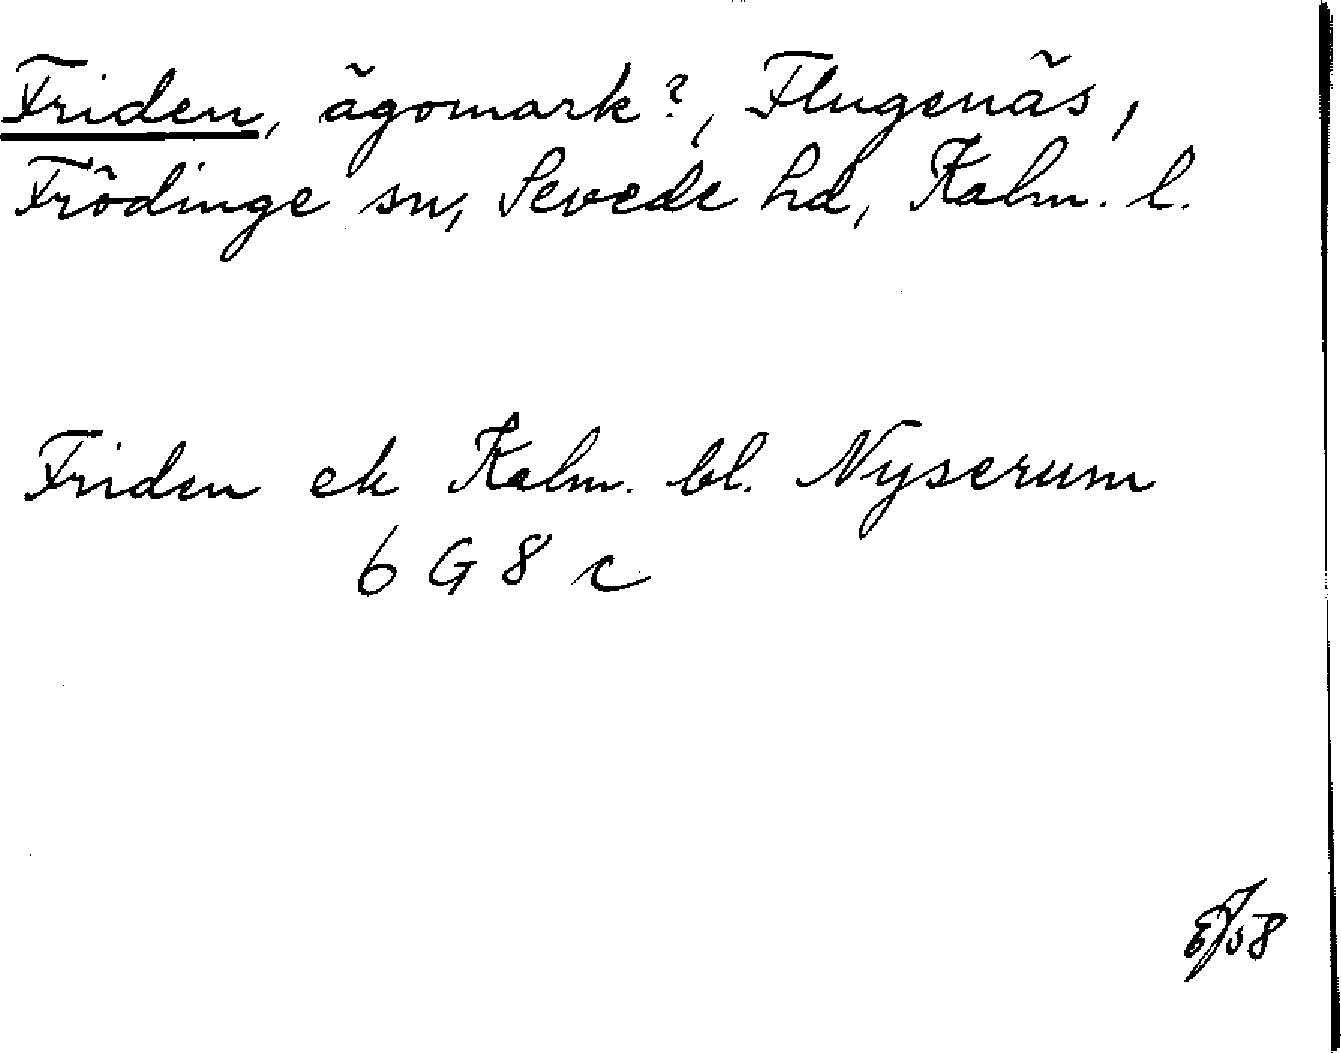 Friden, ägomark?, Flugenäs,
Frödinge sn, Sevede hd, Kalm. l.
Friden ek Kalm. bl. Nyserum
6 G 8 c